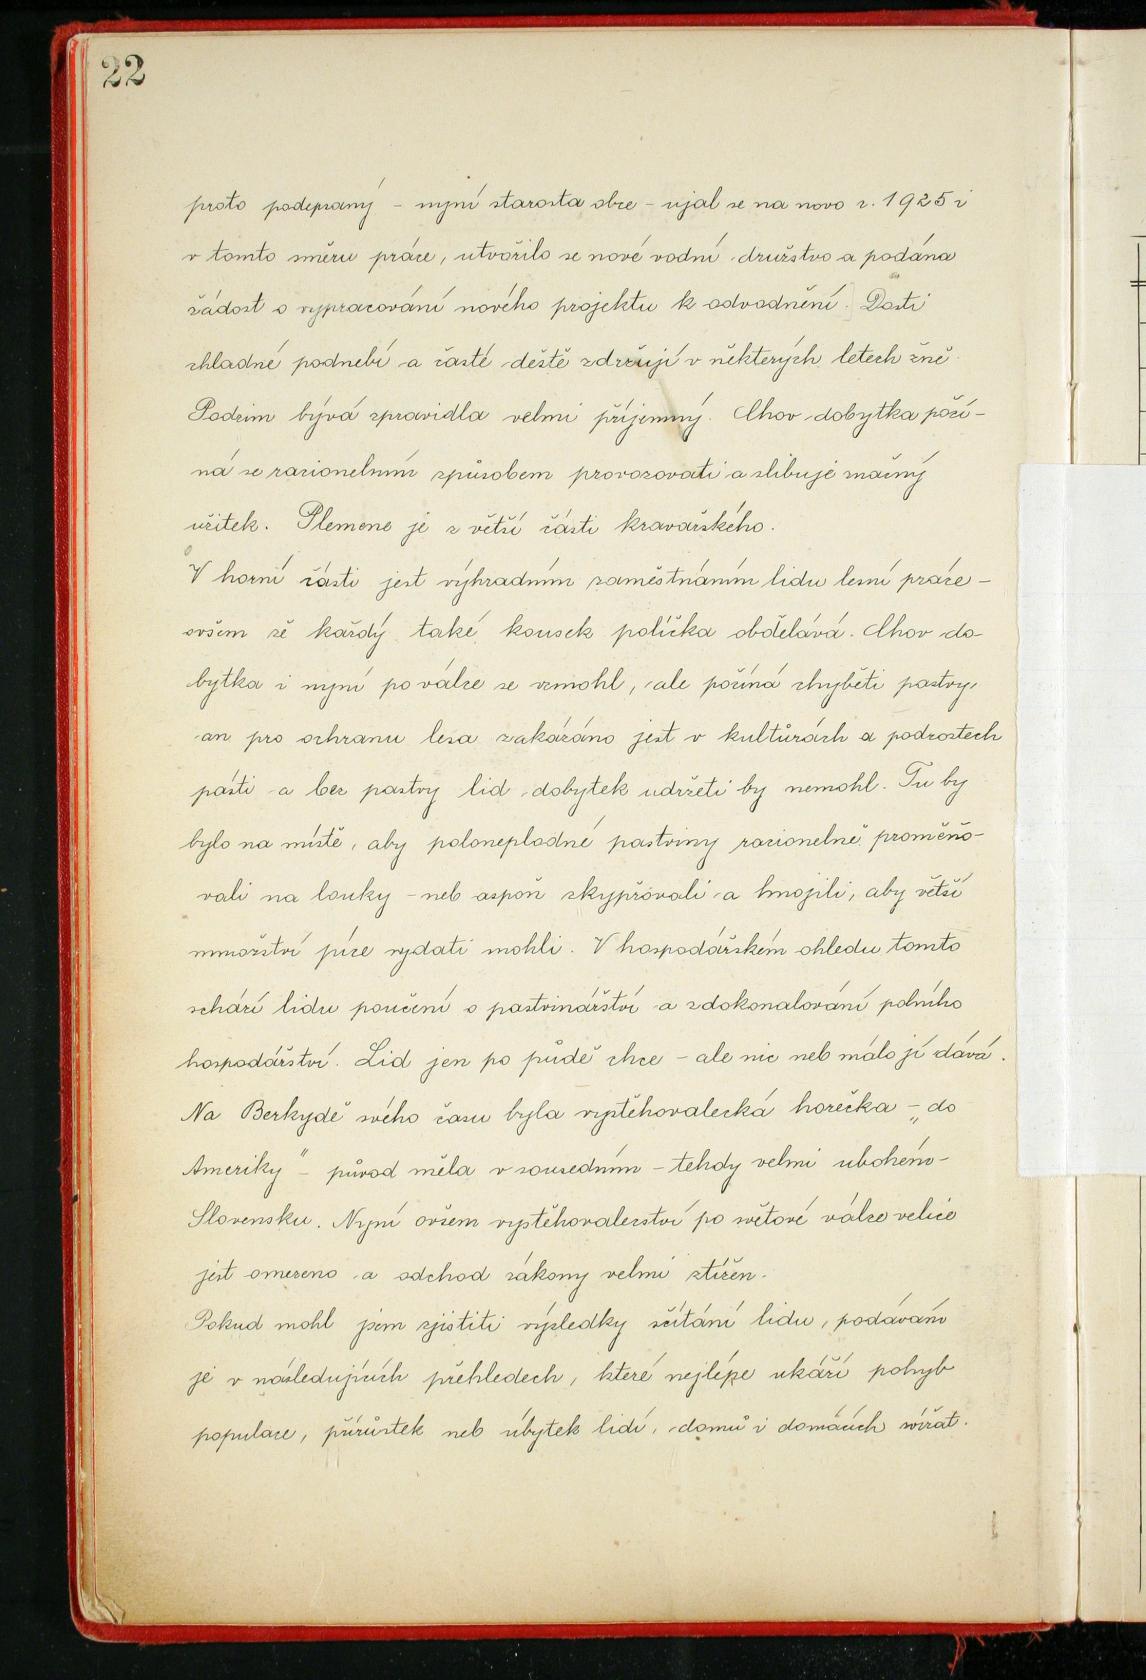 22
proto podepsaný - nyní starosta obce - ujal se na novo r. 1925 i
v tomto směru práce, utvořilo se nové vodní družstvo a podána
žádost o vypracování nového projektu k odvodnění. Dosti
chladné podnebí a časté deště zdržují v některých letech žně.
Podzim bývá zpravidla velmi příjemný. Chov dobytka počí-
ná se racionelním způsobem provozovati a slibuje značný
užitek. Plemene je z větší části kravařského.
V horní části jest výhradním zaměstnáním lidu lesní práce -
ovšem zě každý také kousek políčka obdělává. Chov do-
bytka i nyní po válce se vzmohl, ale počíná chyběti pastvy,
an pro ochranu lesa zakázáno jest v kultůrách a podrostech
pásti a bez pastvy lid dobytek udržeti by nemohl. Tu by
bylo na místě, aby poloneplodné pastviny racionelně proměňo-
vali na louky - neb aspoň skypřovali a hnojili, aby větší
množství píce vydati mohli. V hospodářském ohledu tomto
schází lidu poučení o pastvinářství a zdokonalování polního
hospodářství. Lid jen po půdě chce - ale nic neb málo jí dává.
Na Berkydě svého času byla vystěhovalecká horečka - „do
Ameriky" - původ měla v sousedním - tehdy velmi ubohém -
Slovensku. Nyní ovšem vystěhovalectví po světové válce velice
jest omezeno a odchod zákony velmi ztížen.
Pokud mohl jsem zjistiti výsledky sčítání lidu, podávám
je v následujících přehledech, které nejlépe ukáží pohyb
populace, přírůstek neb úbytek lidí, domů i domácích zvířat.